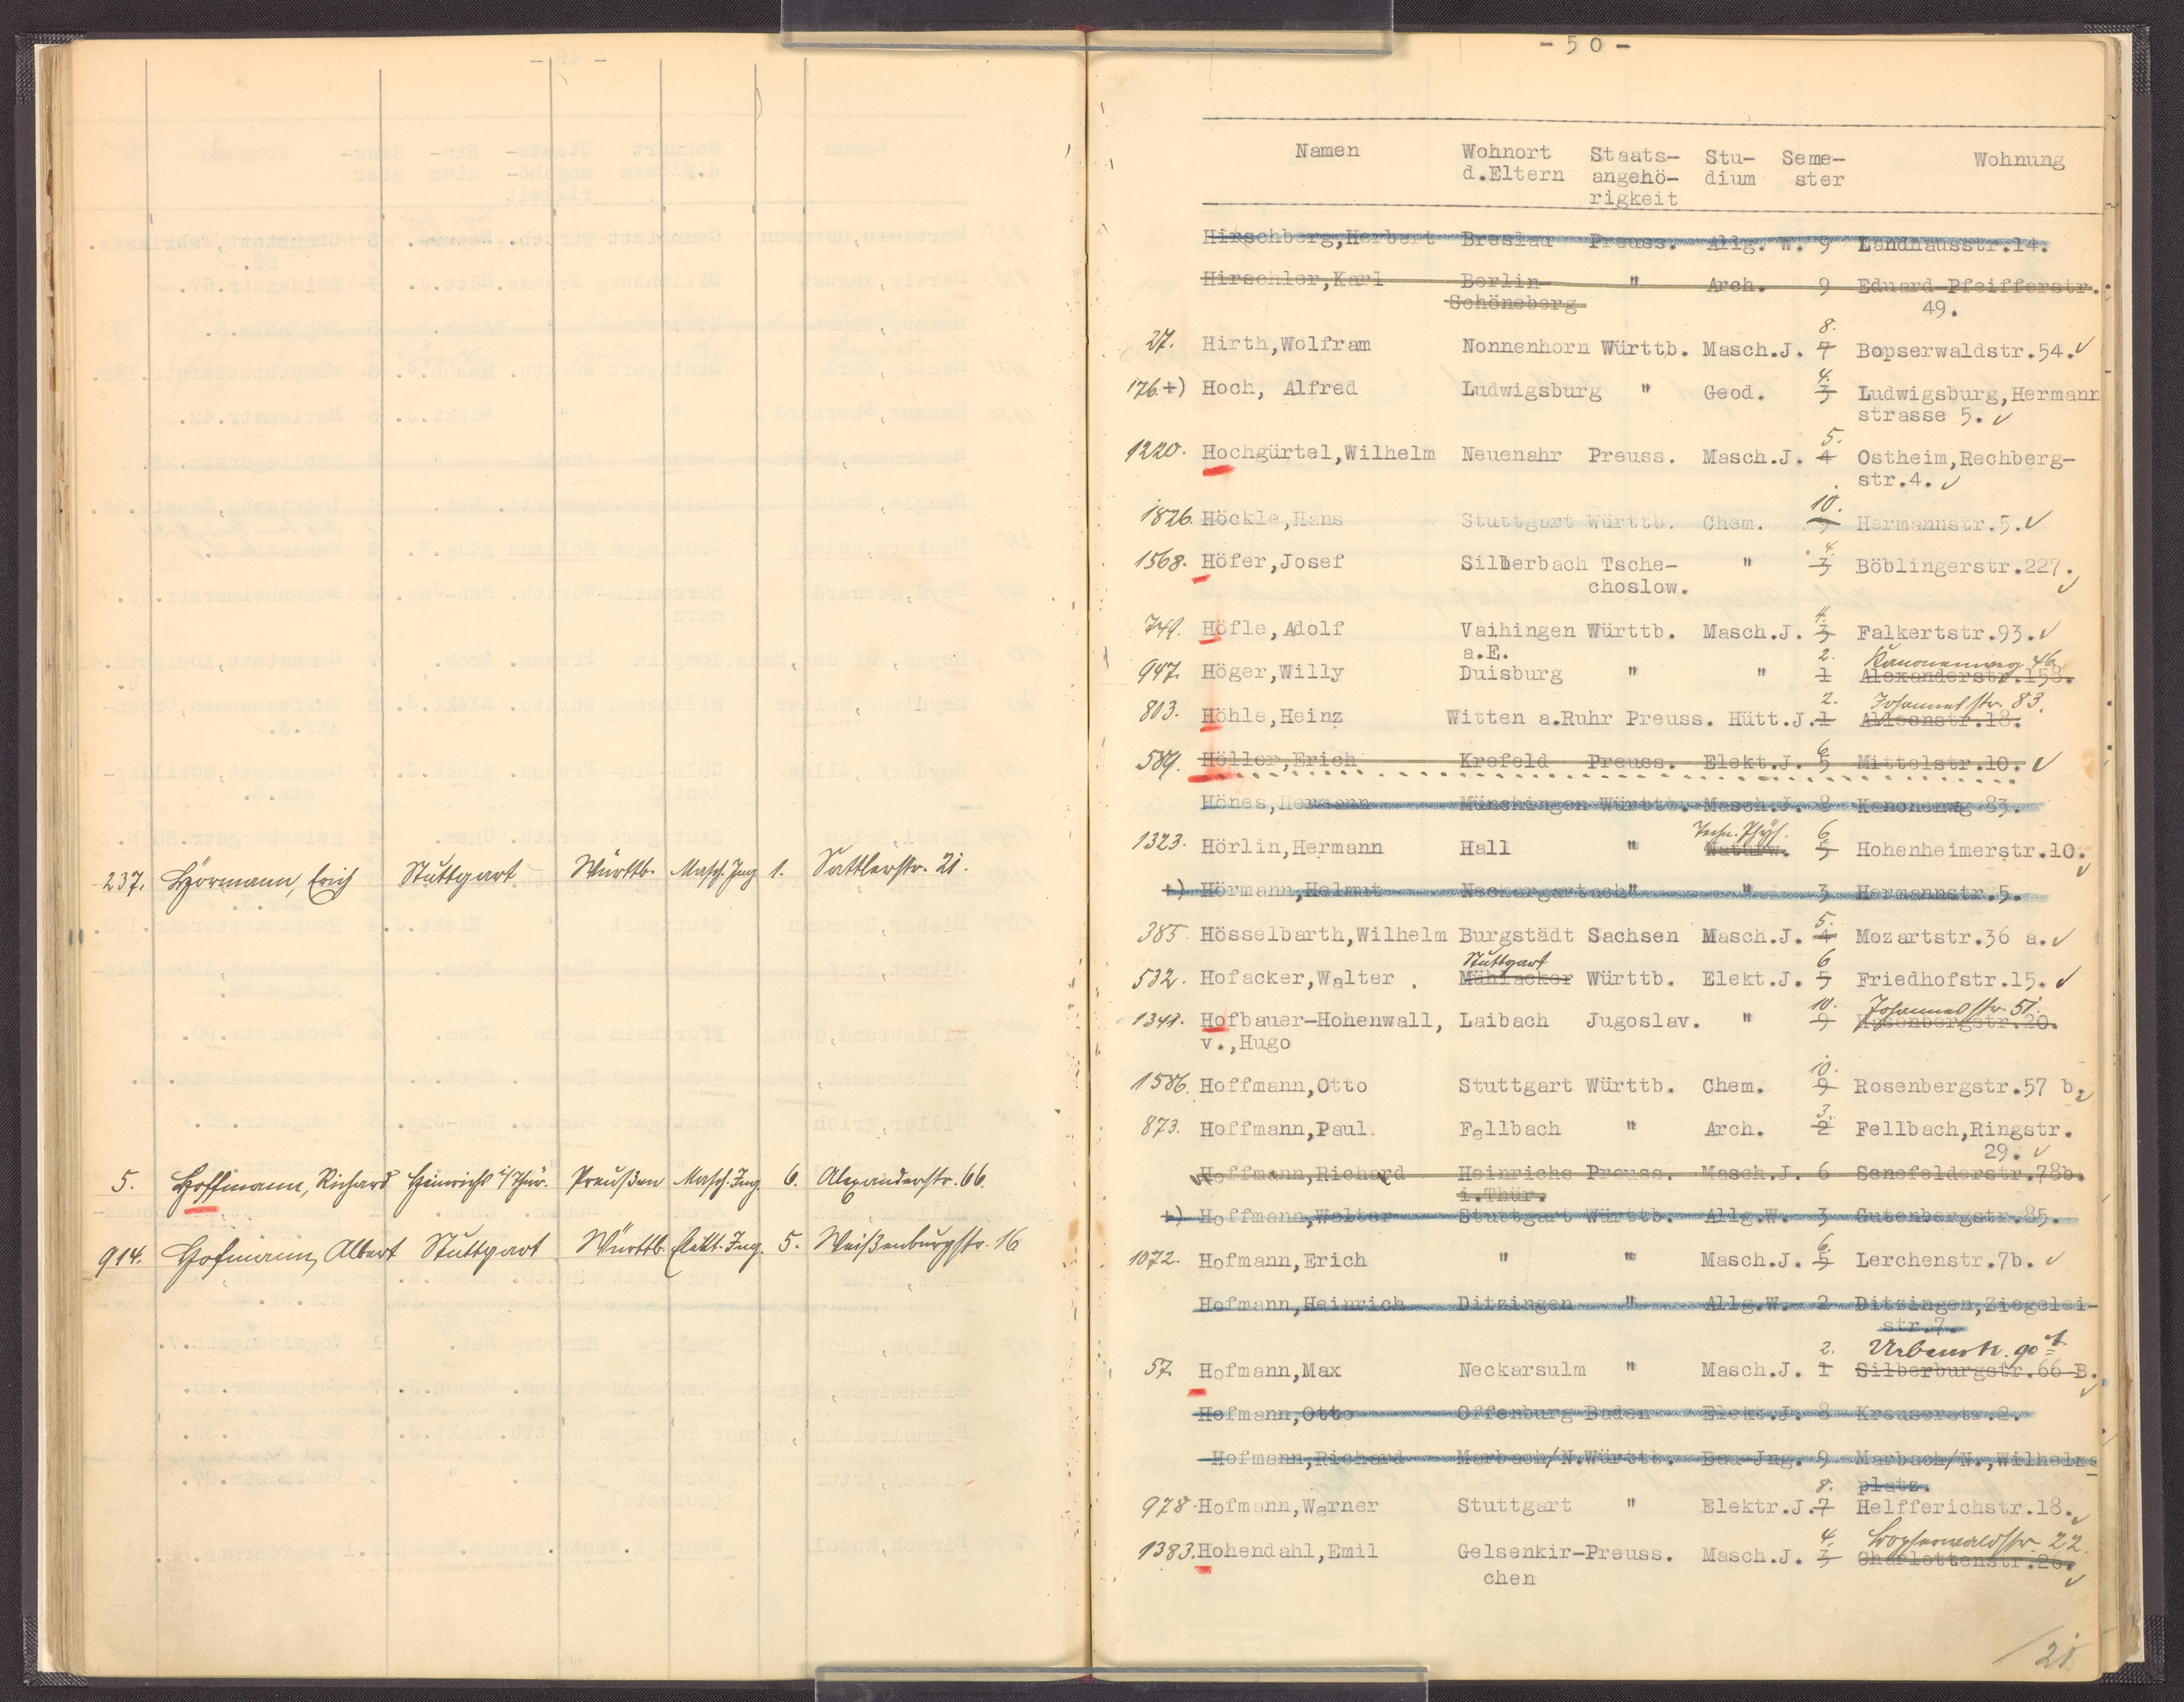 237. Hörmann, Erich Stuttgart Württb. Masch. Ing. 1. Sattlerstr. 21.
5. Hoffmann, Richard Heinrichs i/Thür. Preußen Masch. Ing. 6. Alexanderstr. 66.
914. Hofmann, Albert Stuttgart Württb. Elekt. Ing. 5. Weißenburgstr. 16
- 50 -
Namen Wohnort Staats- Stu- Seme- Wohnung
d.Eltern angehö- dium ster
rigkeit
Hirschberg,Herbert Breslau Preuss. Allg. W. 9 Landhausstr.14.
Hirschler,Karl Berlin " Arch. 9 Eduard Pfeifferstr.
Schöneberg 49.
8.
27. Hirth,Wolfram Nonnenhorn Württb. Masch.J. 7 Bopserwaldstr.54.
4.
176.+) Hoch, Alfred Ludwigsburg " Geod. 3 Ludwigsburg,Hermann
strasse 5.
5.
1220. Hochgürtel,Wilhelm Neuenahr Preuss. Masch.J. 4 Ostheim,Rechberg-
str.4.
10.
1826. Höckle,Hans Stuttgart Württb. Chem. 9 Hermannstr.5.
4.
1568. Höfer,Josef Silberbach Tsche- " 3 Böblingerstr.227.
choslow.
4.
749. Höfle,Adolf Vaihingen Württb. Masch.J. 3 Falkertstr.93.
a.E. 2. Kanonenweg 46
947. Höger,Willy Duisburg " " 1 Alexanderstr.158.
2. Johannesstr. 83.
803. Höhle,Heinz Witten a.Ruhr Preuss. Hütt.J. 1 Alleenstr.18.
6
589. Höller,Erich Krefeld Preuss. Elekt.J. 5 Mittelstr.10.
Hönes,Hermann Münchingen Württb. Masch.J. 8 Kanonenwg 83.
Techn. Phys. 6
1323. Hörlin,Hermann Hall " Naturw. 5 Hohenheimerstr.10.
+) Hörmann,Helmut Neckargartach " " 3 Hermannstr.5.
5.
385. Hösselbarth,Wilhelm Burgstädt Sachsen Masch.J. 4 Mozartstr.36 a.
Stuttgart 6
532. Hofacker,Walter . Mühlacker Württb. Elekt.J. 5 Friedhofstr.15.
10. Johannesstr. 51.
1341. Hofbauer-Hohenwall, Laibach Jugoslav. " 9 Rosenbergstr.20.
v.,Hugo
10.
1586. Hoffmann,Otto Stuttgart Württb. Chem. 9 Rosenbergstr.57 b.
3.
873. Hoffmann,Paul. Fellbach " Arch. 2 Fellbach,Ringstr.
29.
Hoffmann,Richard Heinrichs Preuss. Masch.J. 6 Senefelderstr.78b.
i.Thür.
+) Hoffmann,Walter Stuttgart Württb. Allg.W. 3 Gutenbergstr.85.
6.
1072. Hofmann,Erich " " Masch.J. 5 Lerchenstr.7b.
Hofmann,Heinrich Ditzingen " Allg.W. 2 Ditzingen,Ziegelei-
str.7.
2. Urbanstr. 90
57. Hofmann,Max Neckarsulm " Masch.J. 1 Silberburgstr.66 B.
Hofmann,Otto Offenburg Baden Elekt.J. 8 Kreuserstr.2.
Hofmann,Richard Marbach/N.Württb. Bau-Jng. 9 Marbach/N.,Wilhelms
8. platz.
978. Hofmann,Werner Stuttgart " Elektr.J. 7 Helfferichstr.18.
4. Bopserwaldstr. 22.
1383. Hohendahl,Emil Gelsenkir-Preuss. Masch.J. 3 Charlottenstr.26.
chen
21